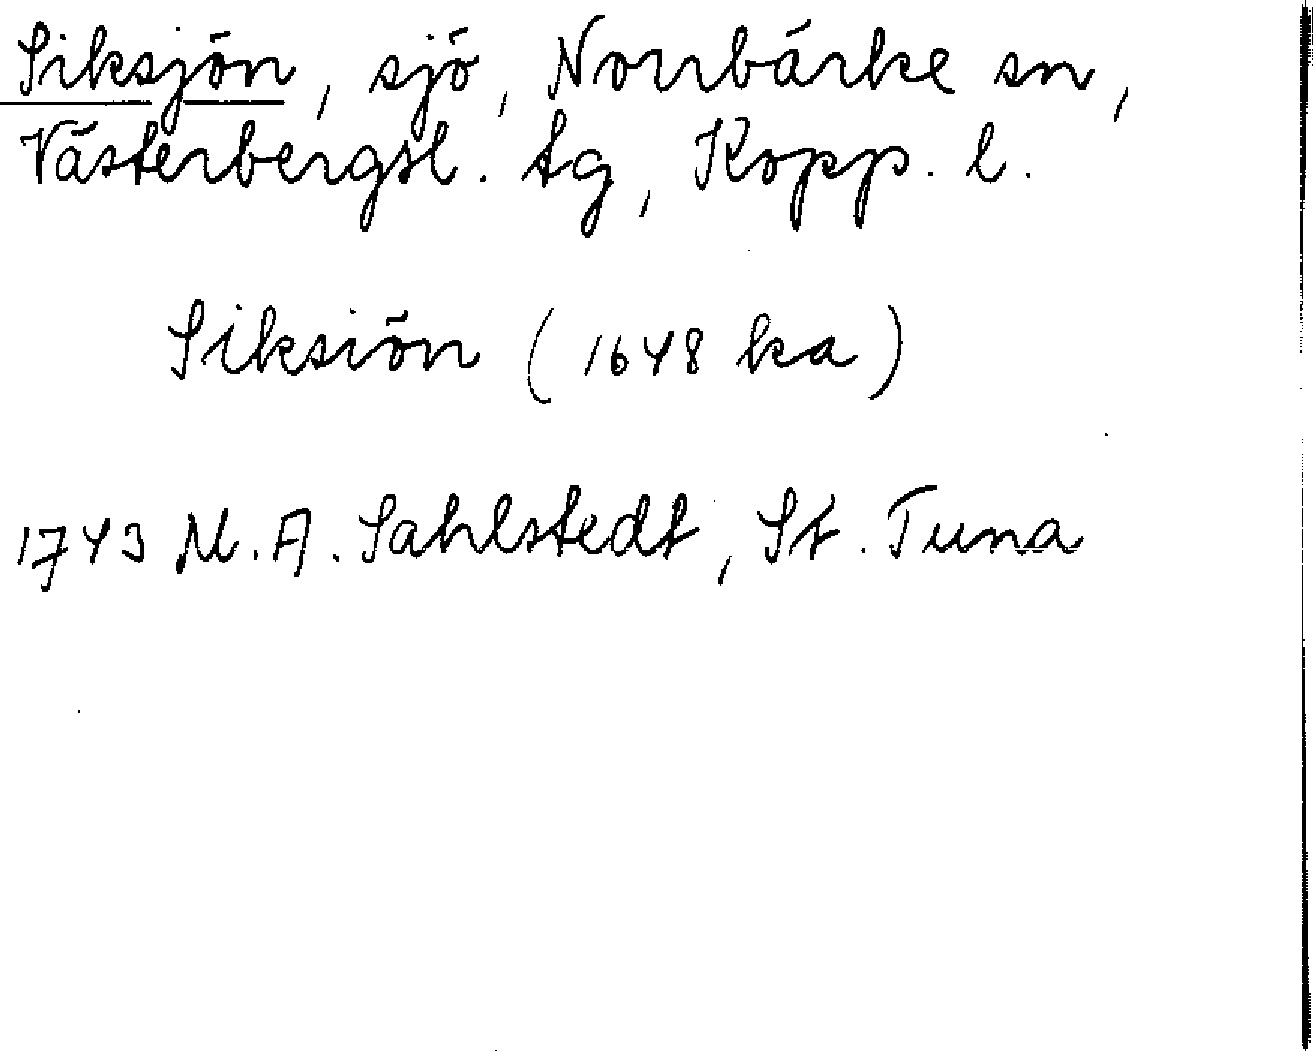 Siksjön, sjö, Norrbärke sn,
Västerbergsl. tg, Kopp. l.
Siksiön (1648 ka)
1743 M. A. Sahlstedt, St. Tuna